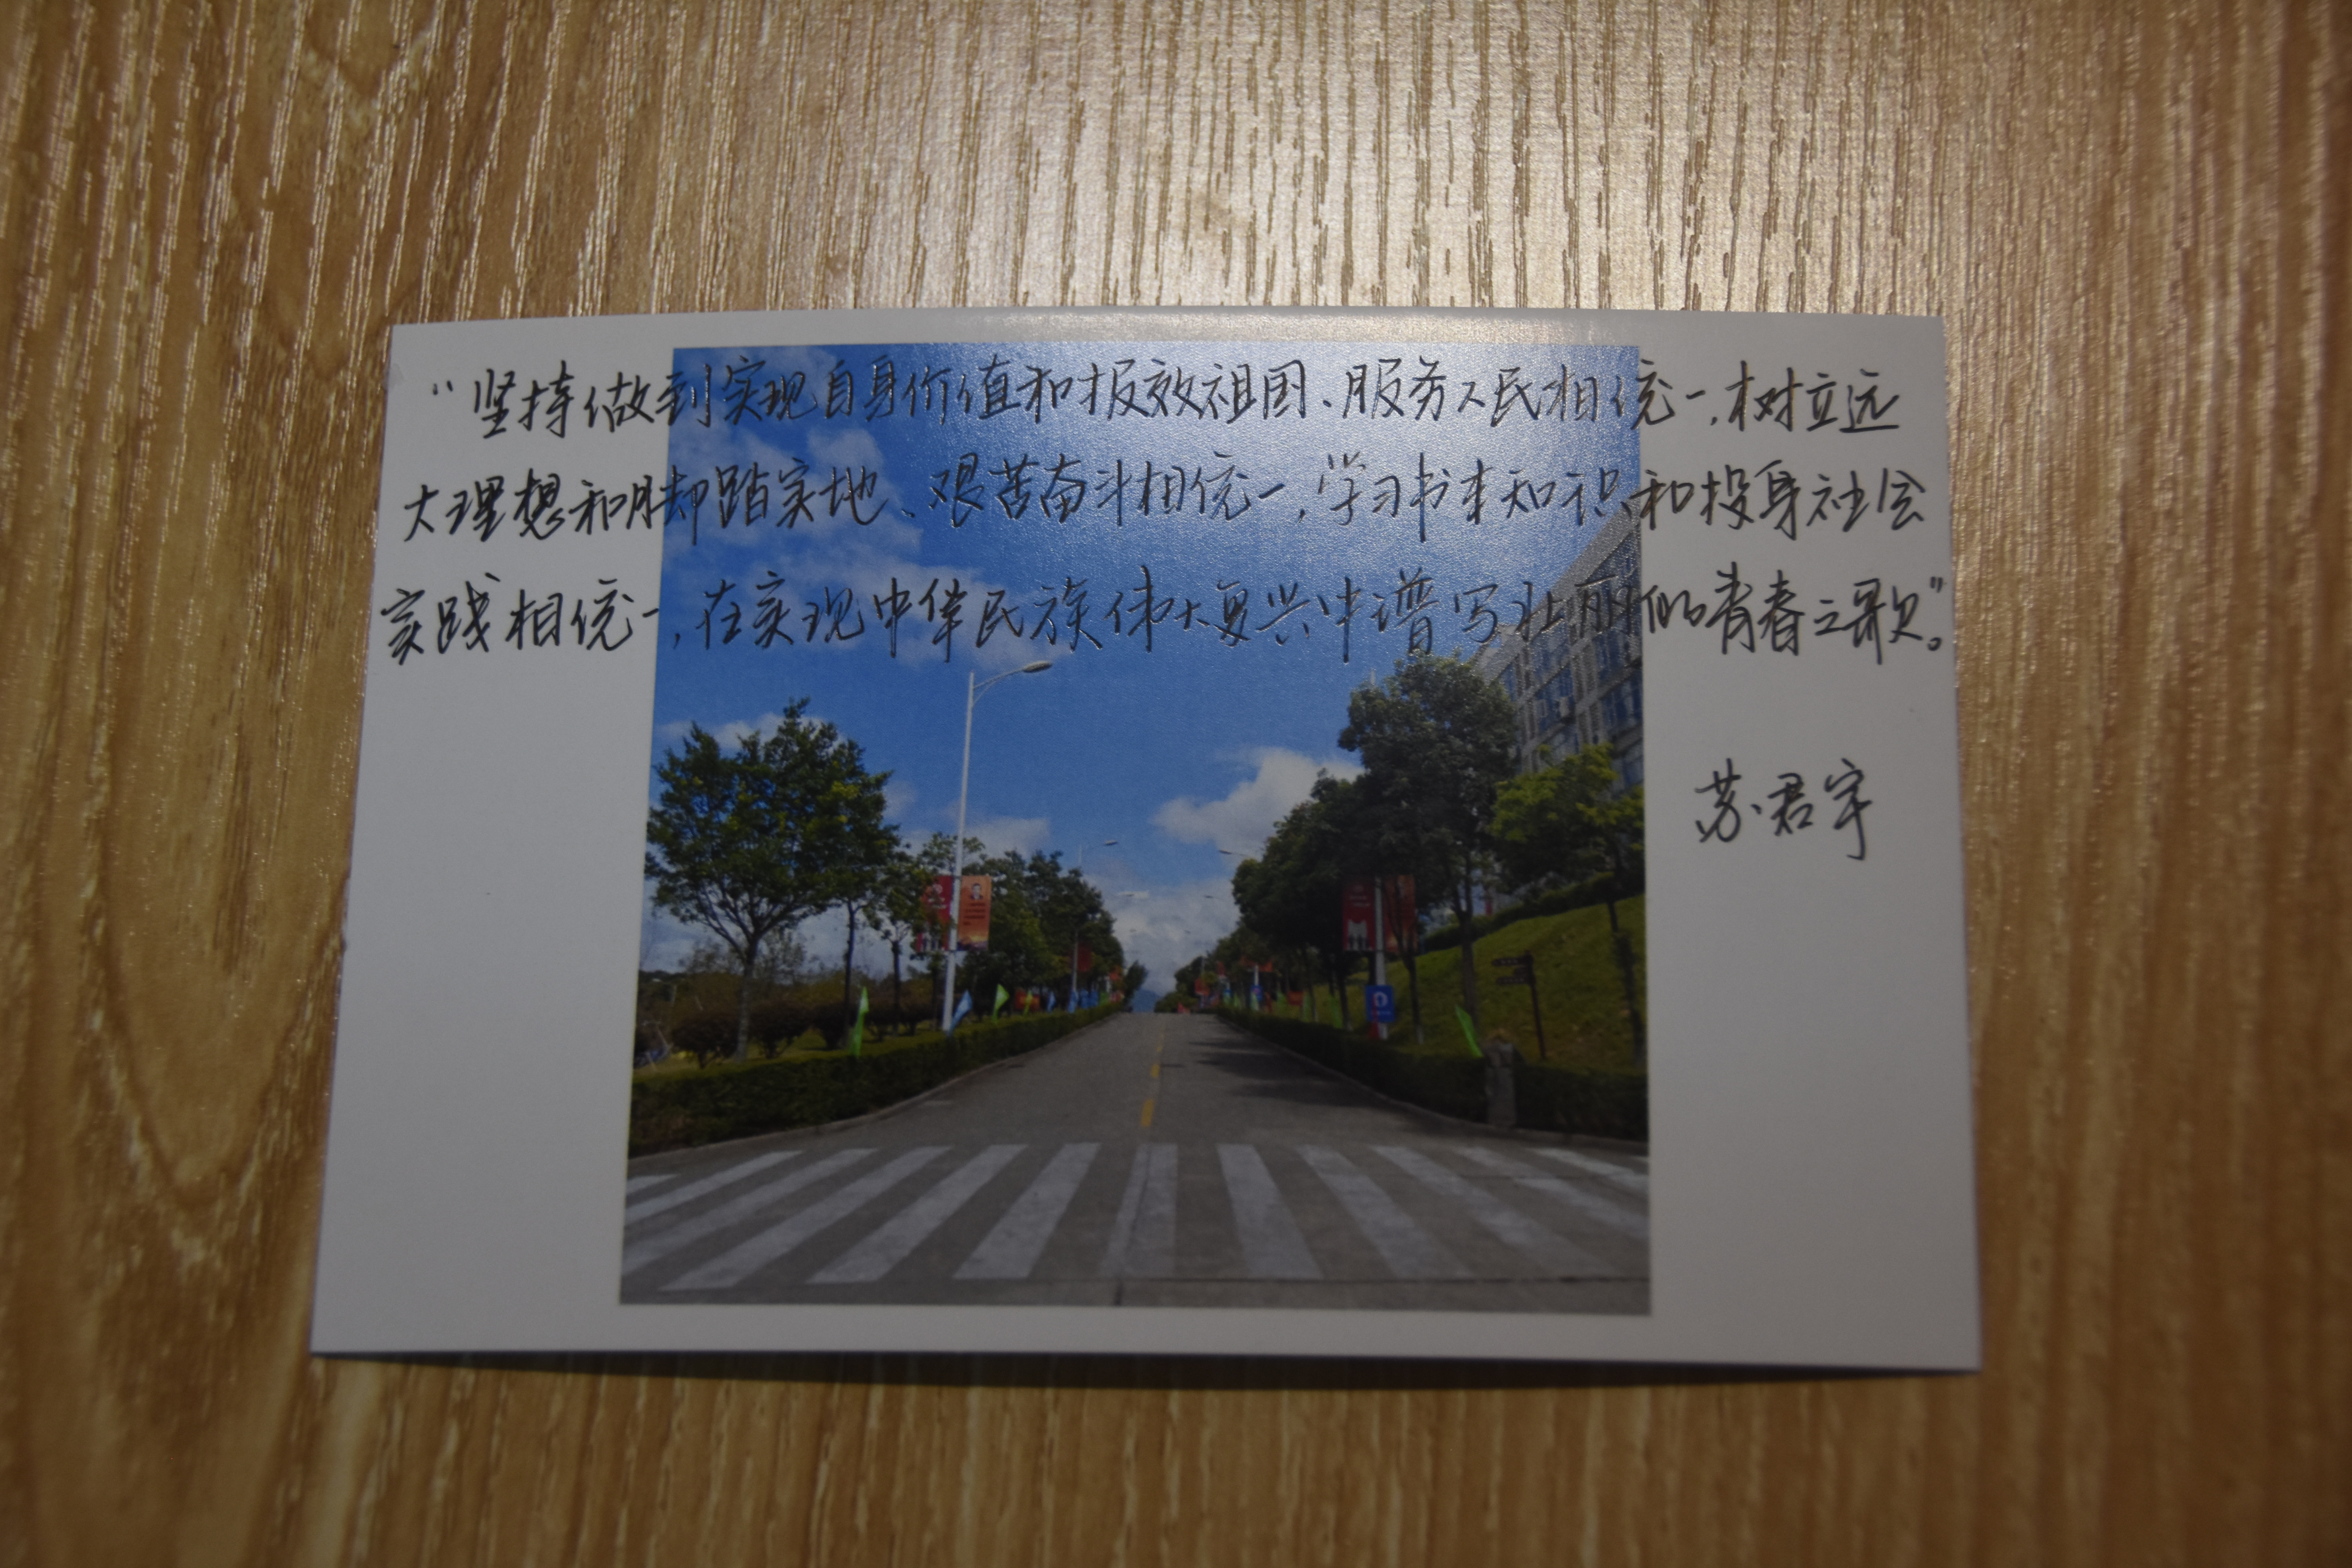 “坚持做到实现自身价值和报效祖国、服务人民相统一,树立远
大理想和脚踏实地、艰苦奋斗相统一,学习书本知识和投身社会
实践相统一,在实现中华民族伟大复兴中谱写壮丽的青春之歌”。
苏君宇